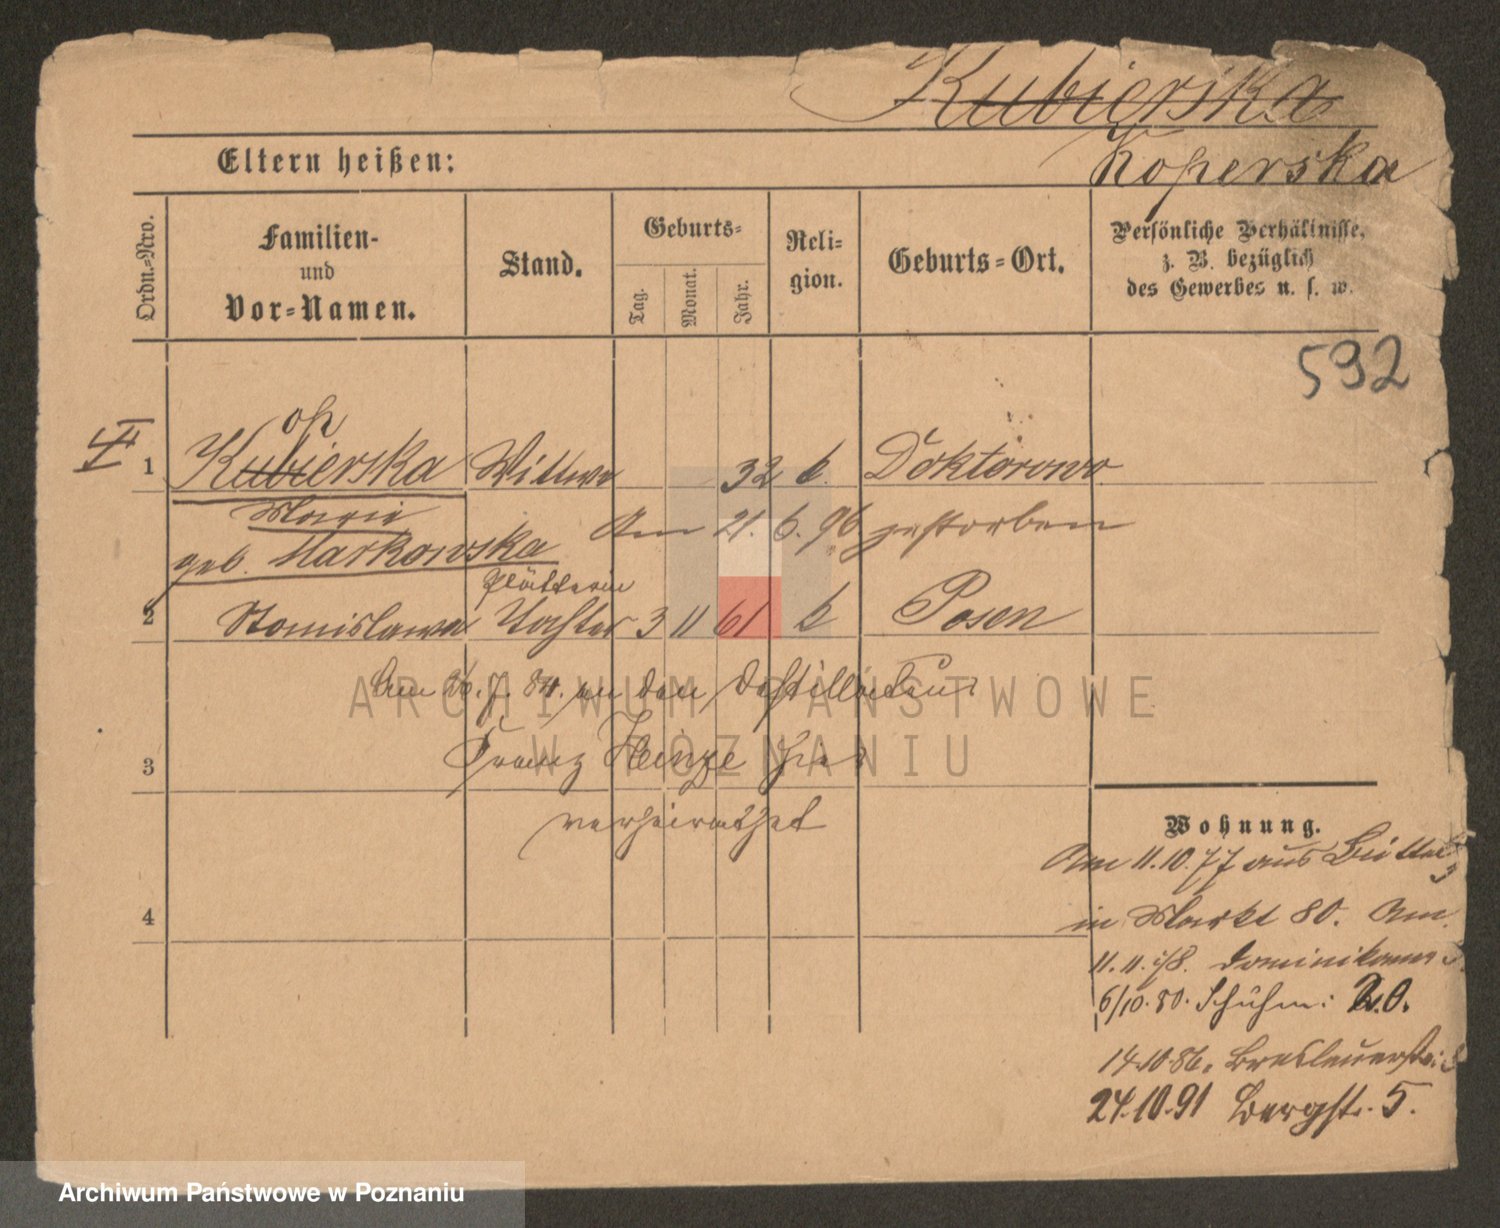 Kubierska
Eltern heißen:
Koperska
Ordn.-Nro.
Familien-
und
Vor-Namen.
Stand.
Geburts-
Tag.
Monat.
Jahr.
Reli-
gion.
Geburts-Ort.
Persönliche Verhältnisse,
z. B. bezüglich
des Gewerbes u. s. w.
592
op
1 Kubierska Wittwe 32 k. Doktorowo
Marie Am 21. 6. 96 gestorben
geb. Markowska
Plätterin
2 Stanislawa Tochter 3 11 61 k Posen
Am 26. 7. 84. an den Destillateur
3 Franz Heinze hier
verheirathet
Wohnung.
Am 11.10.77 aus
4 in Markt 80. Am
11.11.78. Dominikaner
6/10.80. Schuhm:
14.10.86. Breslauerstr:
24.10.91 Bergstr. 5.
ARCHIWUM PAŃSTWOWE
W POZNANIU
Archiwum Państwowe w Poznaniu